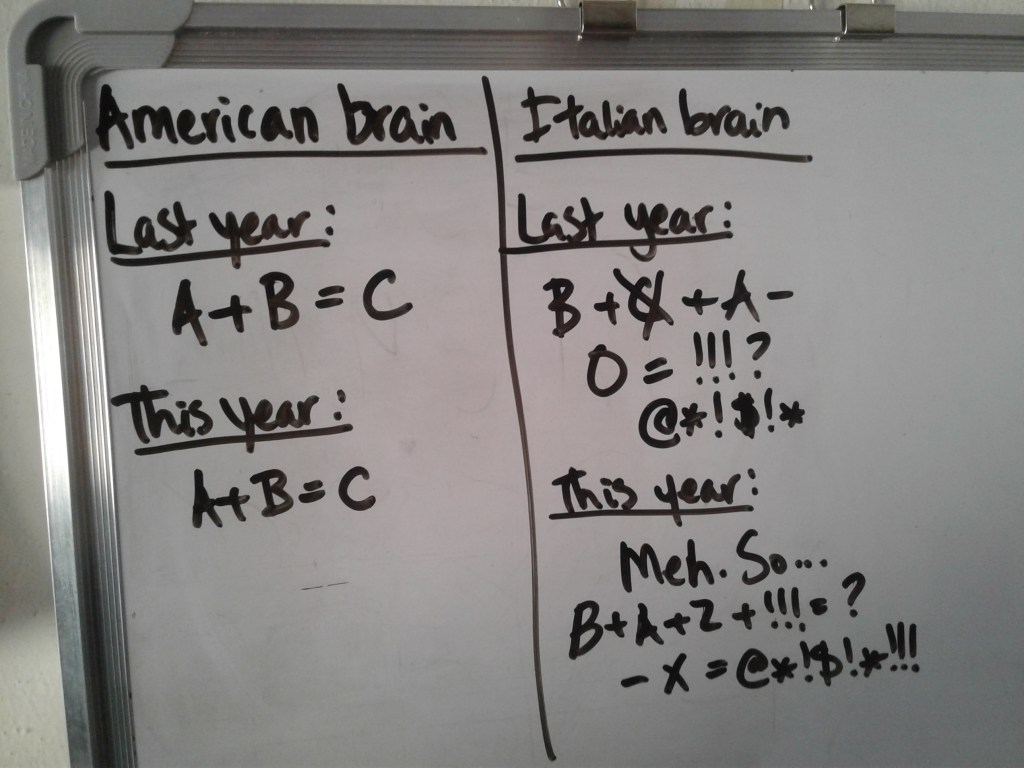 American brain
Last year:
A+B=C
This year:
A+B=C
Italian brain
Last year:
B + + A -
O = !!!?
@*!$!*
This year:
Meh. So...
B+A+Z+!!!=?
- X = @*!$!*!!!